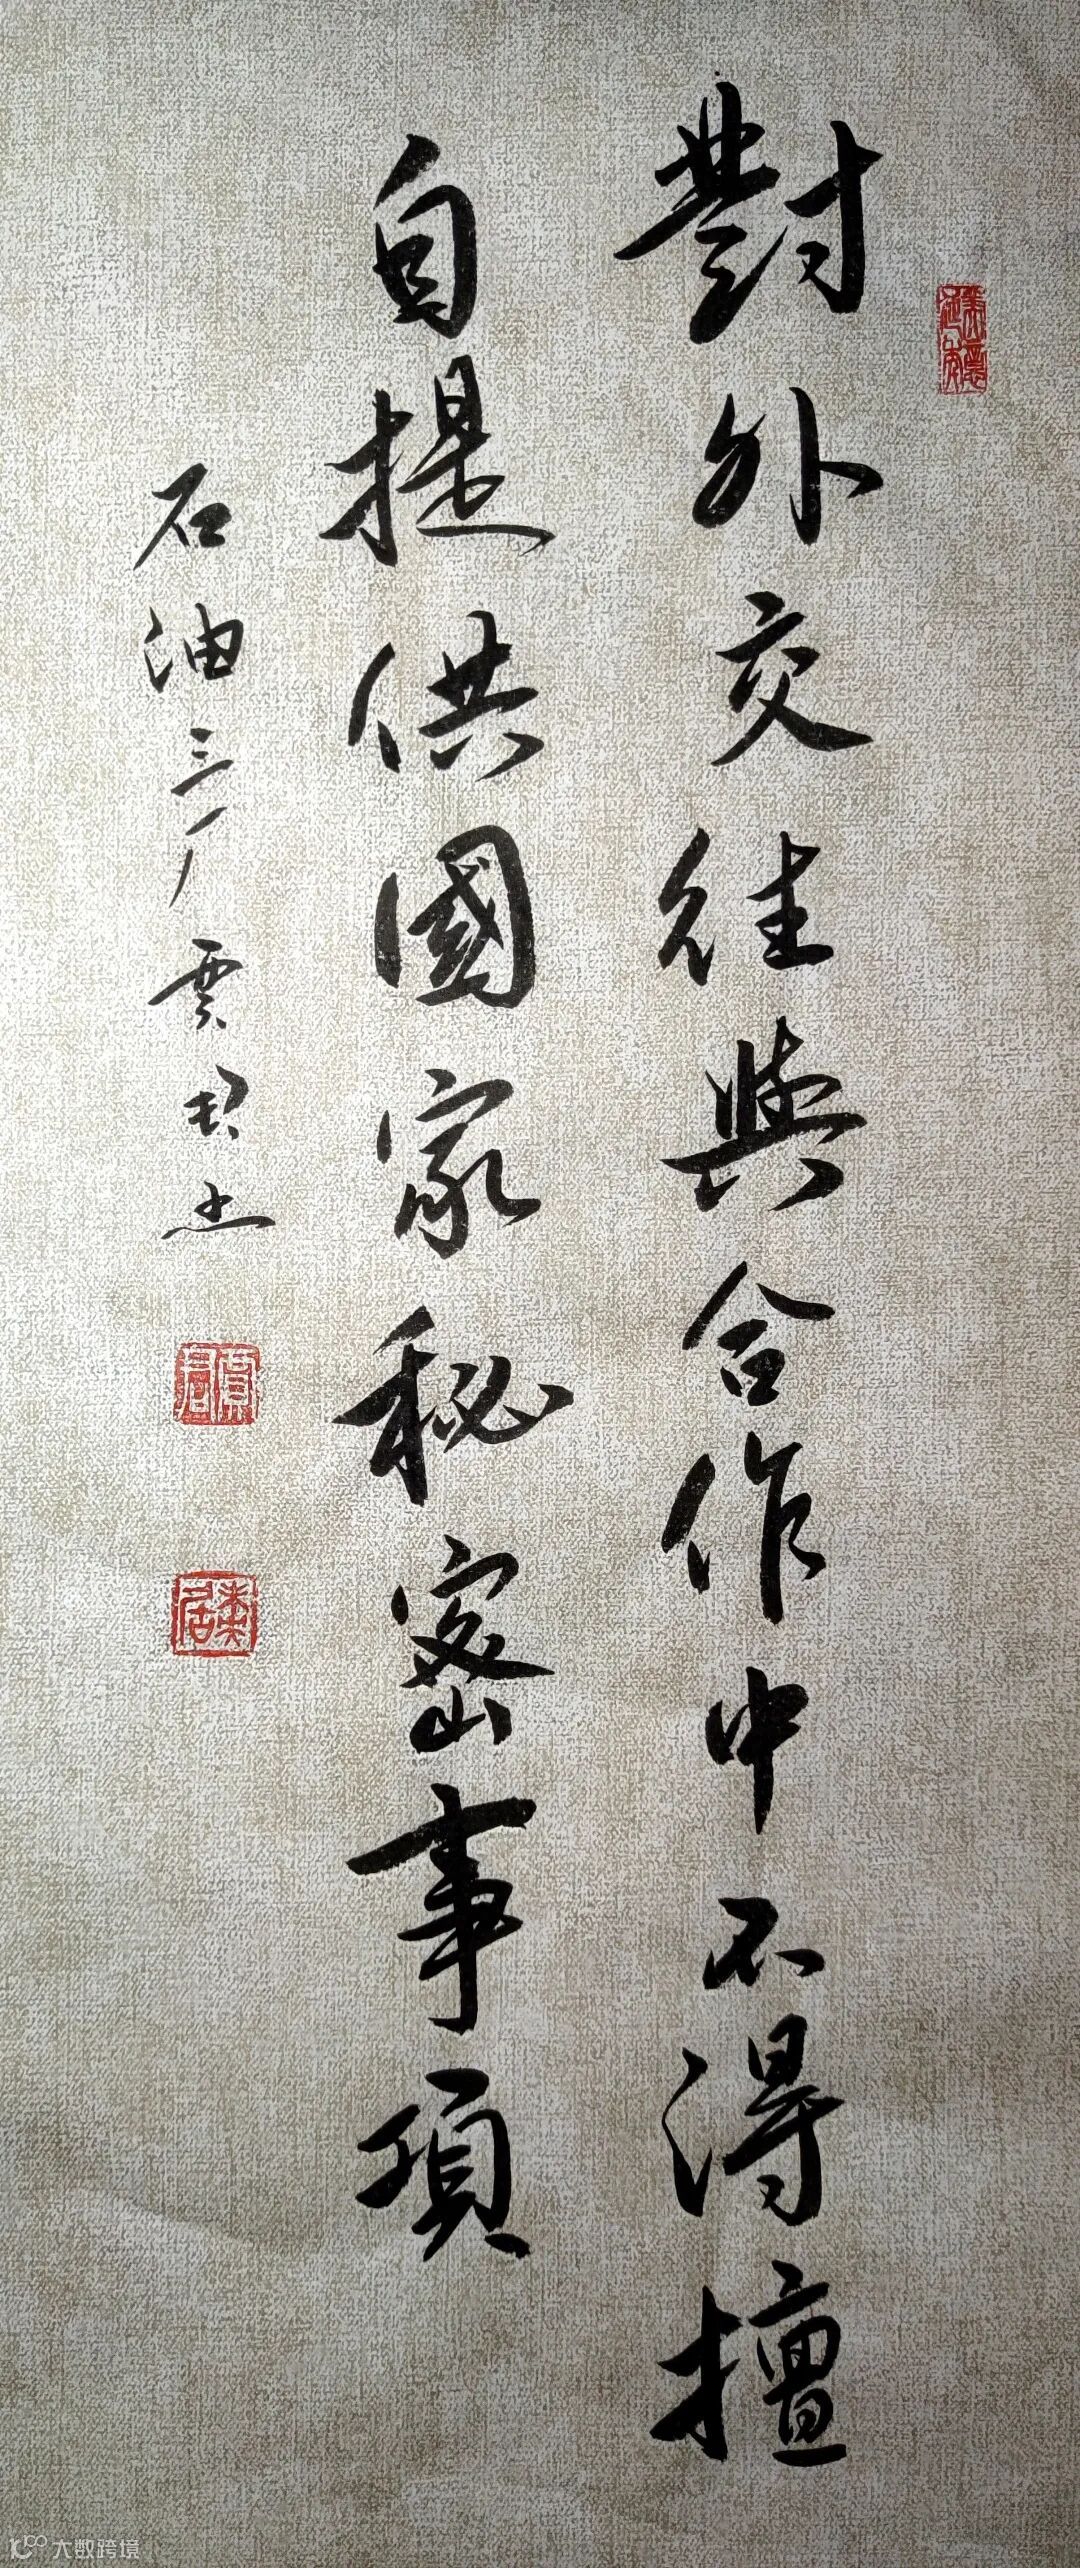 對外交往與合作中不得擅
自提供國家秘密事項
石油三厂賈君杰
大数跨境